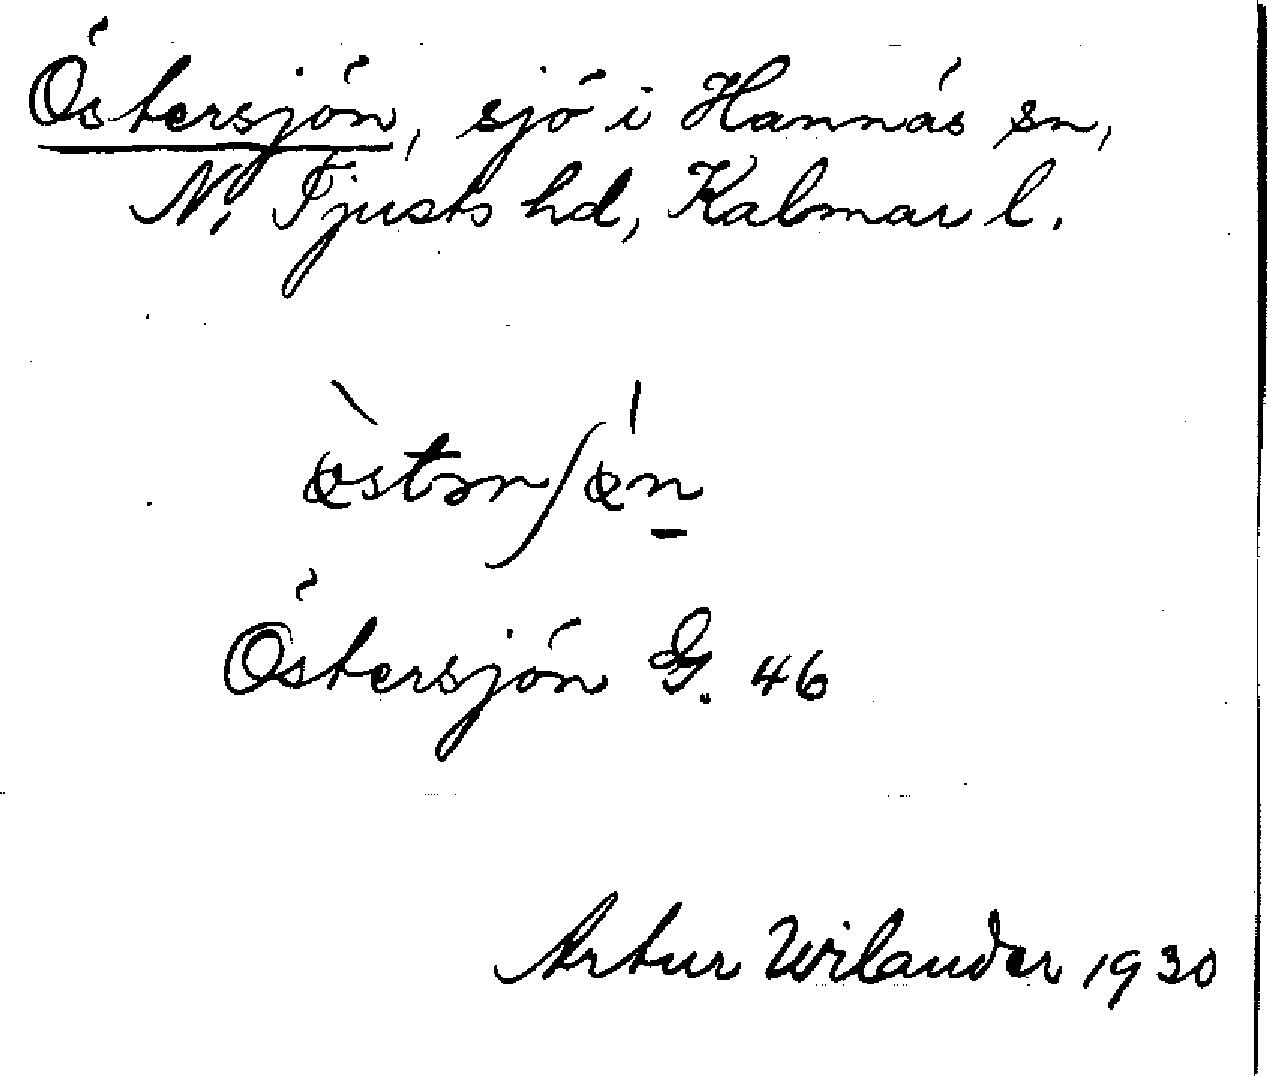 Östersjön, sjö i Hannäs sn,
N. Tjusts hd, Kalmar l.
Östersjön G. 46
Artur Wilander 1930